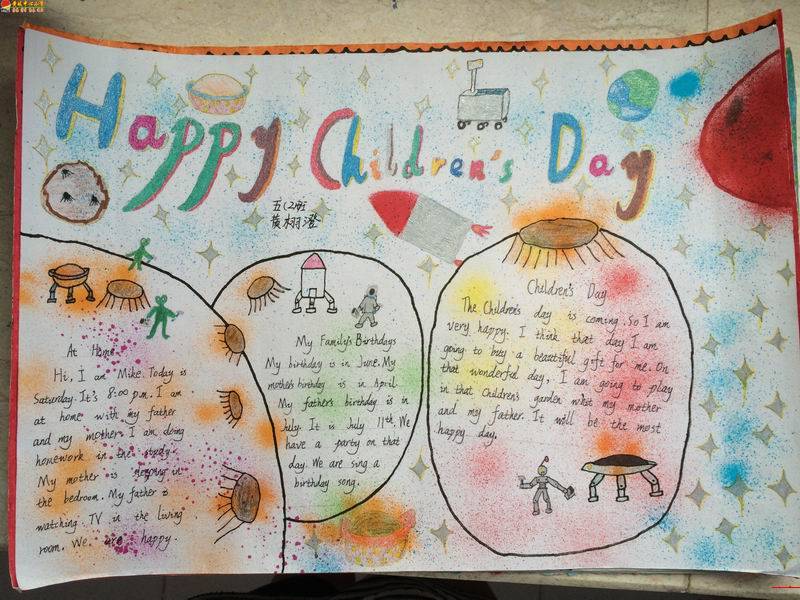 Happy Children's Day
五(2)班
黄栩澄
At Home
Hi, I am Mike. Today is
Saturday. It's 8:00 p.m. I am
at home with my father
and my mother. I am doing
homework in the study.
My mother is sleeping in
the bedroom. My father is
watching TV in the living
room. We are happy.
My Family's Birthdays
My birthday is in June. My
mother's birthday is in April.
My father's birthday is in
July. It is July 11th. We
have a party on that
day. We are sing a
birthday song.
Children's Day
The Children's day is coming. So I am
very happy. I think that day I am
going to buy a beautiful gift for me. On
that wonderful day, I am going to play
in that Children's garden what my mother
and my father. It will be the most
happy day.